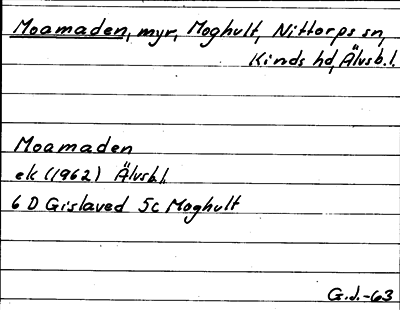 Moamaden, myr, Moghult, Nittorps sn,
Kinds hd, Älvsb.l.
Moamaden
ek (1962) Älvsb.l.
6 D Gislaved 5c Moghult
G.J.-63